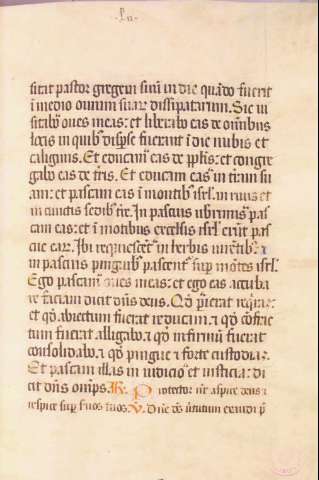 sitat pastor gregem suū in die quādo fuerit
ī medio ouium suaꝝ dissipatarum. Sic ui
sitabo oues meas: et liberabo eas de omnibus
locis in quib⁹ disp̄se fuerant ī die nubis et
caliginis. Et educam eas de pp̄lis: et congre
gabo eas de t̄ris. Et educam eas in terram su
am: et pascam eas ī montib⁹ isrl̄. in riuis et
in cunctis sedib⁹ tr̄e. In pascuis uberrimis pas
cam eas: et ī motibus excelsis isrl̄ erūt pas
cue eaꝝ. Ibi requiescēt in herbis uirētib⁹: ⁊
in pascuis pinguib⁹ pascent⁹ sup̄ mōtes isrl̄.
Ego pascam oues meas: et ego eas accuba
re faciam dicit dn̄s deus. Qd̄ p̄ierat reqirā:
et qd̄ abiectum fuerat reducam. ⁊ qd̄ cōfrac
tum fuerat alligabo. ⁊ qd̄ infirmū fuerat
consolidabo. ⁊ qd̄ pingue ⁊ forte custodiā.
Et pascam illas in iudicio et iusticia: di
cit dn̄s omīps. R. Protector nr̄ aspice deus ⁊
respice sup̄ seruos tuos. V. Dn̄e ds̄ uirtutum exaudi p̄